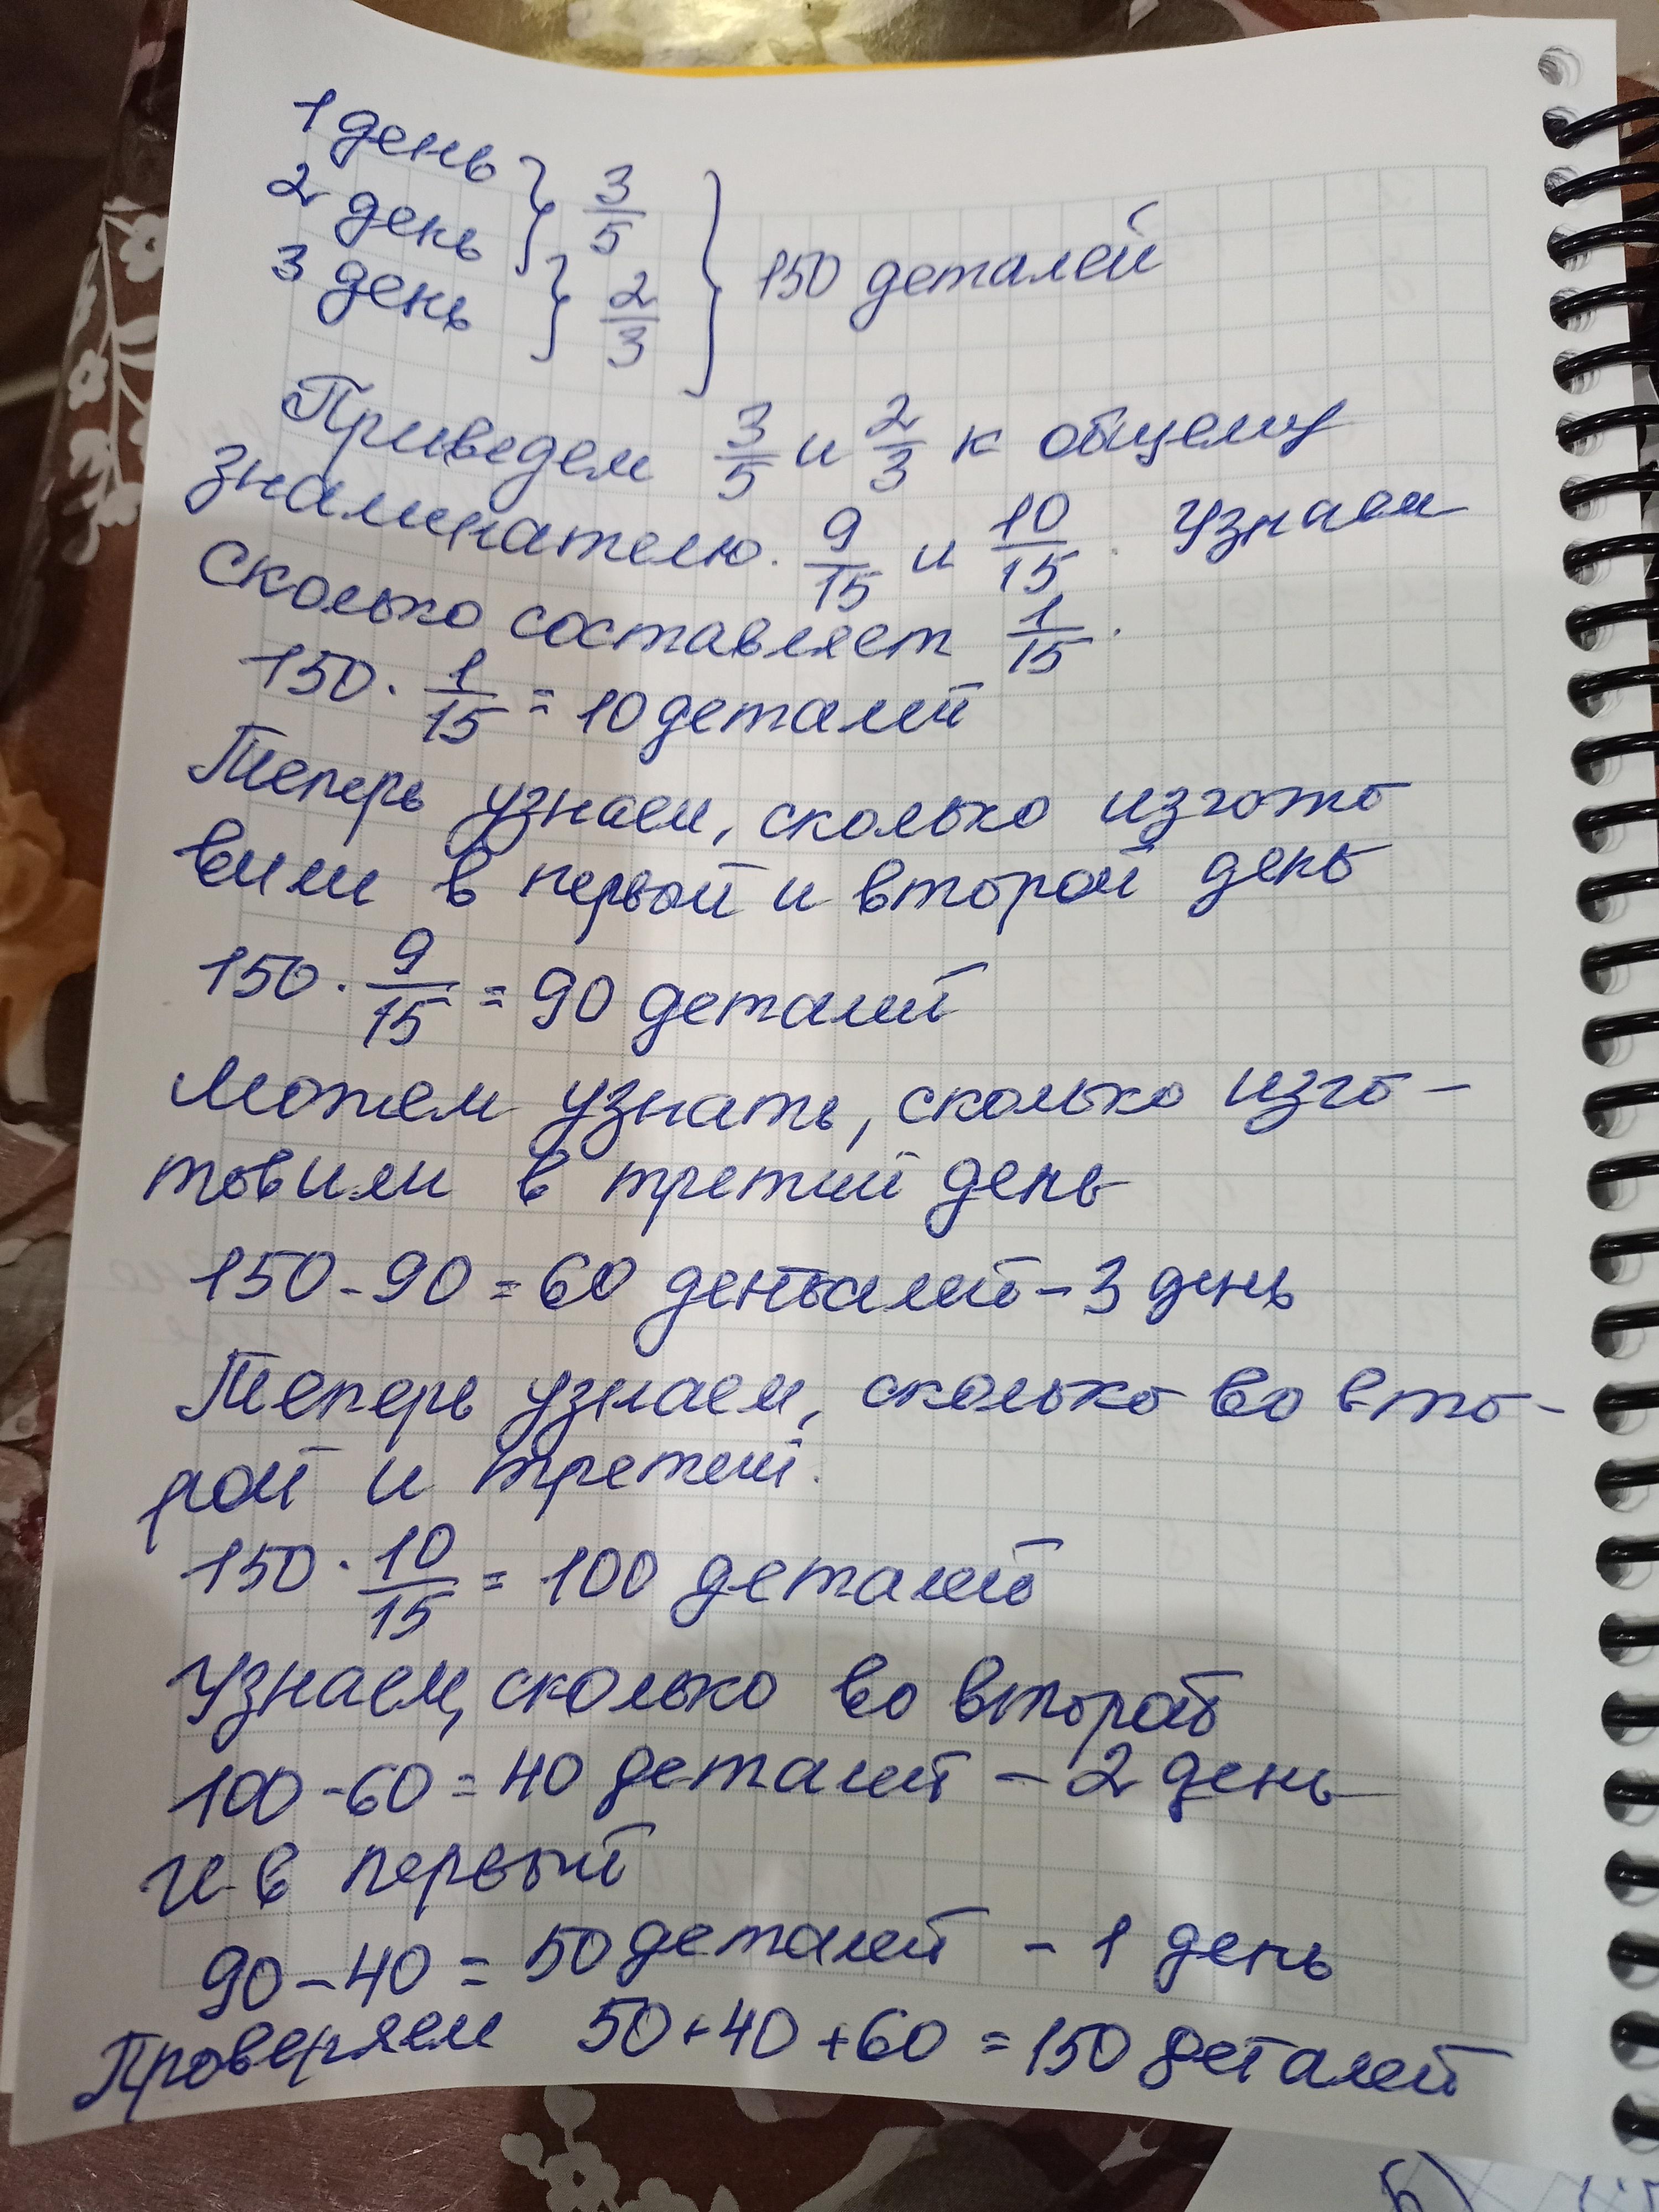 1 день
2 день } 3/5
3 день } 2/3 } 150 деталей
Приведем 3/5 и 2/3 к общему
знаминателю. 9/15 и 10/15. Узнаем
сколько составляет 1/15.
150 · 1/15 = 10 деталей
Теперь узнаем, сколько изгото
вили в первый и второй день
150 · 9/15 = 90 деталей
Можем узнать, сколько изго-
товили в третий день
150 - 90 = 60 деталей - 3 день
Теперь узнаем, сколько во вто-
рой и третий.
150 · 10/15 = 100 деталей
Узнаем, сколько во второй
100 - 60 = 40 деталей - 2 день
и в первый
90 - 40 = 50 деталей - 1 день
Проверяем 50 + 40 + 60 = 150 деталей